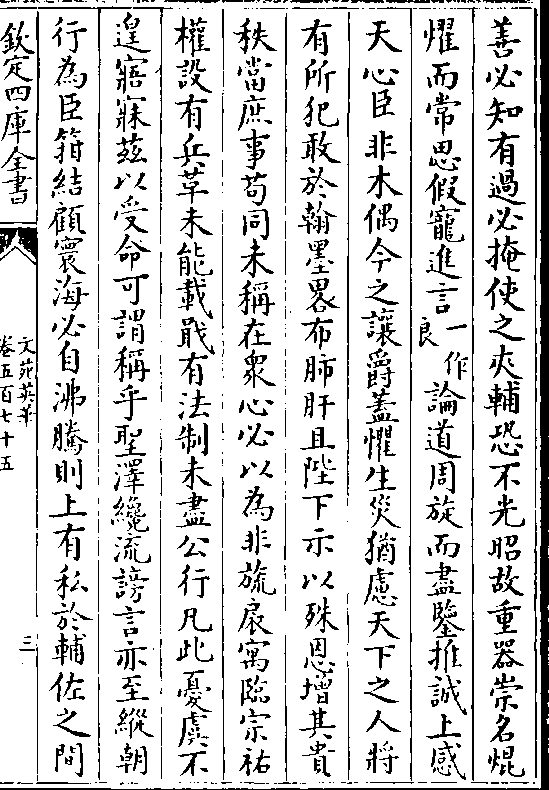 善必知有過必掩使之夾輔恐不光昭故重器崇名焜
懼而常思假寵進言一作良論道周旋而盡鑒推誠上感
天心臣非木偶今之讓爵蓋懼生災猶慮天下之人將
有所犯敢於翰墨畧布肺肝且陛下示以殊恩增其貴
秩當庶事苟同未稱在衆心必以為非旒扆寓臨宗祐
權設有兵革未能載戢有法制未盡公行凡此憂虞不
遑寤寐茲以受命可謂稱乎聖澤纔流謗言亦至縱朝
行為臣箝結顧寰海必自沸騰則上有私於輔佐之間
欽定四庫全書
文苑英華
卷五百七十五
三